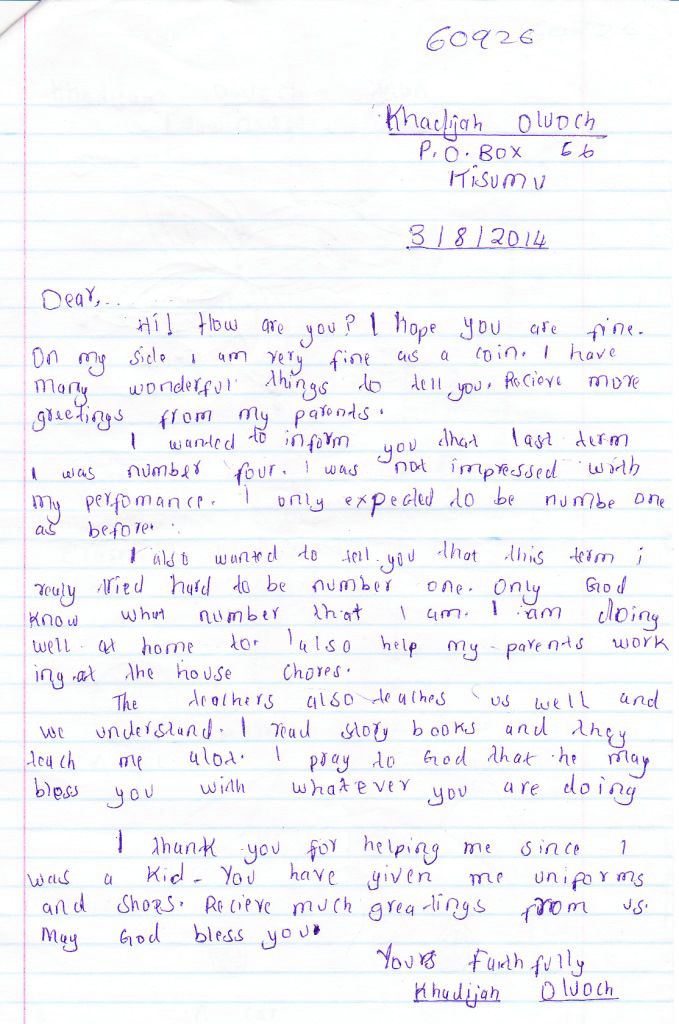 60926
Khadijah Oluoch
P.O. BOX 66
Kisumu
3/8/2014
Dear,...
Hi! How are you? I hope you are fine.
On my side i am very fine as a coin. I have
many wonderful things to tell you. Recieve more
greetings from my parents.
I wanted to inform you that last term
I was number four. I was not impressed with
my perfomance. I only expected to be numbe one
as before.
I also wanted to tell you that this term i
realy tried hard to be number one. Only God
know what number that I am. I am doing
well at home to. I also help my parents work
ing at the house chores.
The teachers also teaches us well and
we understand. I read story books and they
teach me alot. I pray to God that he may
bless you with whatever you are doing
I thank you for helping me since I
was a kid. You have given me uniforms
and shoes. Recieve much greatings from us.
May God bless you.
Yours Faithfully
Khadijah Oluoch